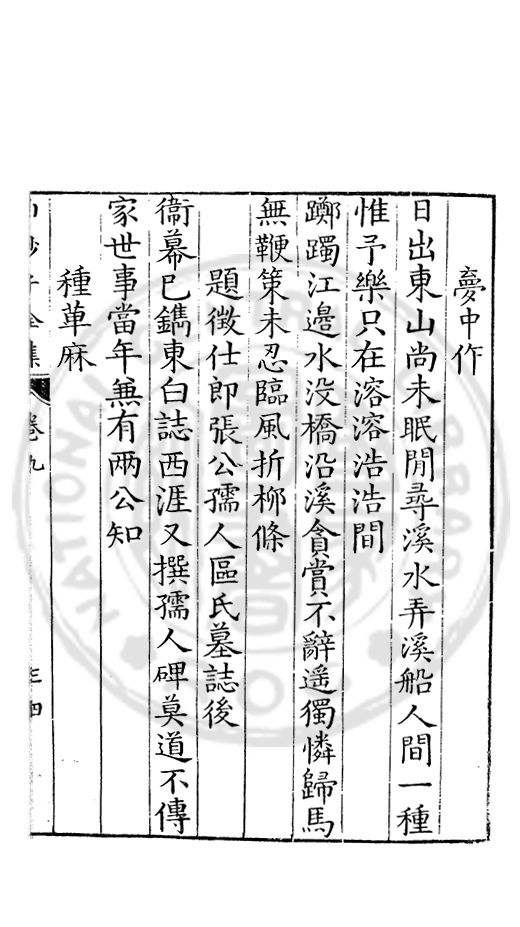 夢中作
日出東山尚未眠閒尋溪水弄溪船人間一種
惟予樂只在溶溶浩浩間
躑躅江邊水没橋沿溪貪賞不辭遥獨憐歸馬
無鞭策未忍臨風折柳條
題徵仕郎張公孺人區氏墓誌後
衞幕已鐫東白誌西涯又撰孺人碑莫道不傳
家世事當年無有两公知
種萆麻
子全集 卷九 三四